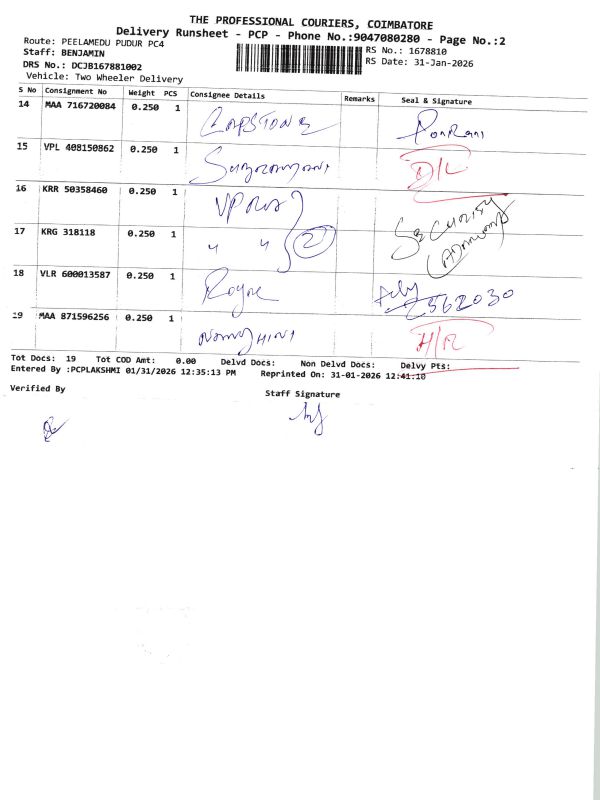 THE PROFESSIONAL COURIERS, COIMBATORE
Delivery Runsheet - PCP - Phone No.:9047080280 - Page No.:2
Route: PEELAMEDU PUDUR PC4
Staff: BENJAMIN
RS No.: 1678810
DRS No.: DCJB167881002
RS Date: 31-Jan-2026
Vehicle: Two Wheeler Delivery
S No Consignment No Weight PCS Consignee Details Remarks Seal & Signature
14 MAA 716720084 0.250 1
15 VPL 408150862 0.250 1 D/L
16 KRR 50358460 0.250 1
17 KRG 318118 0.250 1 " " 2 SECURITY
18 VLR 600013587 0.250 1 562030
19 MAA 871596256 0.250 1 H/R
Tot Docs: 19 Tot COD Amt: 0.00 Delvd Docs: Non Delvd Docs: Delvy Pts:
Entered By :PCPLAKSHMI 01/31/2026 12:35:13 PM Reprinted On: 31-01-2026 12:41:10
Verified By
Staff Signature